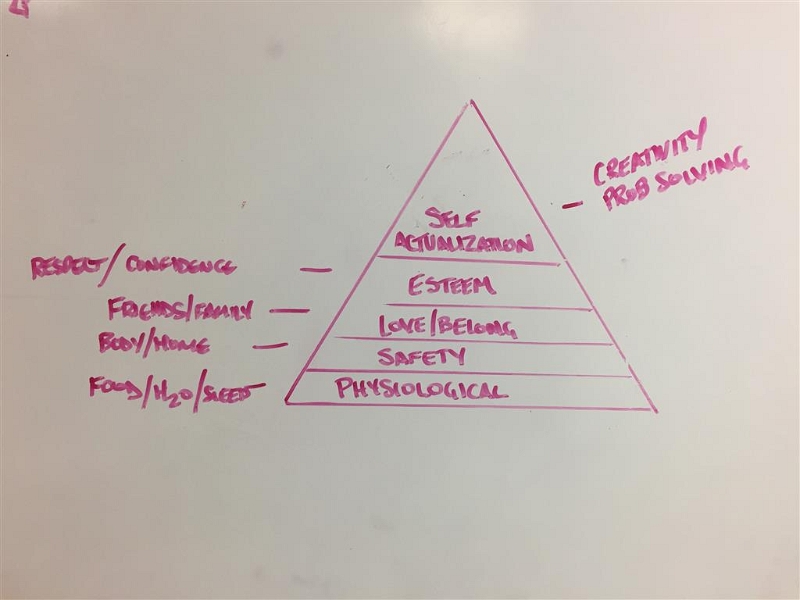 CREATIVITY
PROB SOLVING
SELF
ACTUALIZATION
RESPECT/CONFIDENCE
ESTEEM
FRIENDS/FAMILY
LOVE/BELONG
BODY/HOME
SAFETY
FOOD/H₂O/SLEEP
PHYSIOLOGICAL